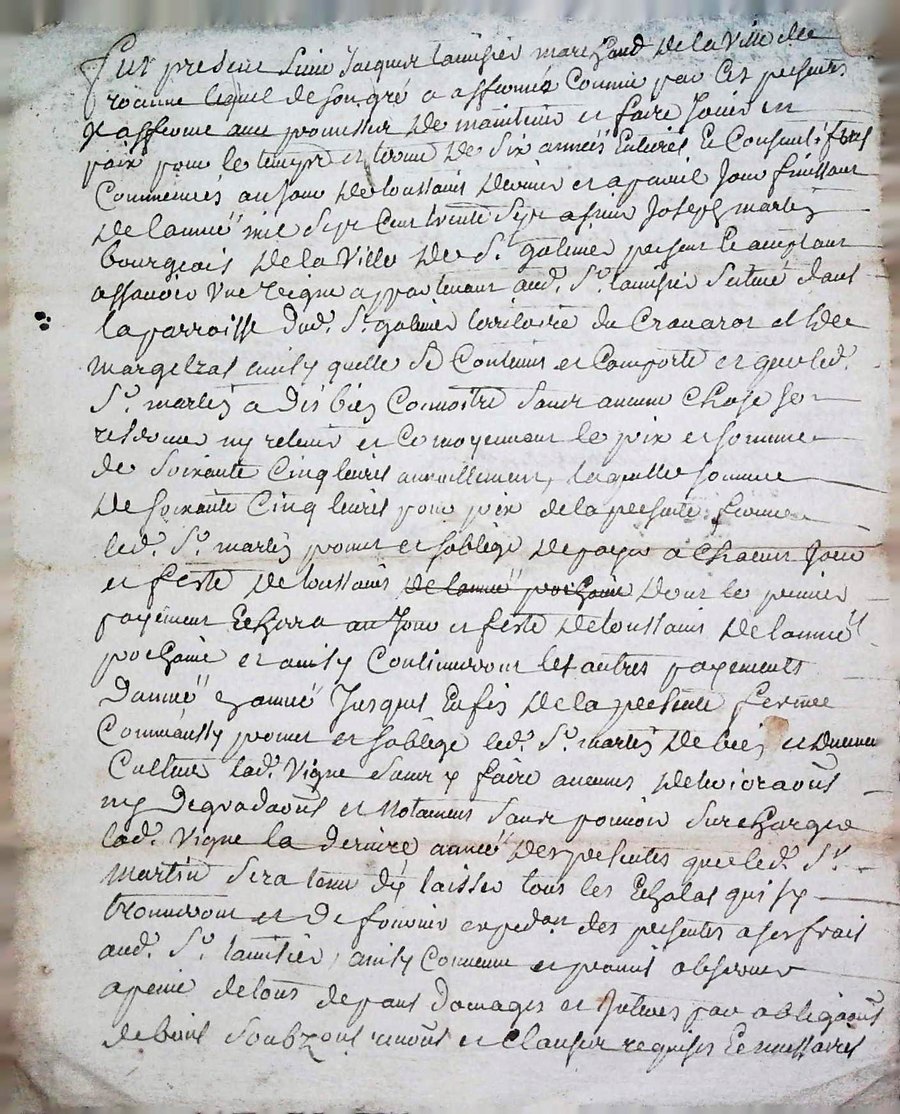 fut present Sieur Jacques tamisier marchand de la Ville de
roanne lequel de son gré a affermé Comme par Ces presentes
Il afferme avec promesse de maintenir et faire Jouir en
paix pour le temps et terme de Six années Entieres Et Consecutifves
Commencées au Jour de toussains dernier et a pareil Jour finissant
de lannéé mil Sept Cent trente Sept a sieur Joseph martin
bourgeois de la Ville de St. galmier present Et acceptant
assavoir Une Vigne appartenant aud. Sr. tamisier Scituée dans
la parroisse dud. St. galmier territoire du Cravarot et de
ainsy quelle Se Contient et Comporte et que led.
Sr. martin a dit bien Connoistre Sans aucune Chose Se
reserver ny retenir et Ce moyennant le prix et somme
de Soixante Cinq livres annuellement, laquelle somme
de Soixante Cinq livres pour prix de la presente ferme
led. Sr. martin promet et soblige de payer a Chacun Jour
et feste de toussains de lannéé prochaine dont le premier
payement Echerra au Jour et feste de toussains de lannéé
prochaine et ainsy Continueront les autres payements
dannéé en annéé Jusques Enfin de la presente ferme
Comm'aussy promet et soblige led. Sr. martin de bien et duement
Cultiver lad. Vigne Sans y faire aucunes deterioraons
ny degradaons et Notament Sans pouvoir Surcharger
lad. Vigne la derniere annéé des presentes que led. Sr.
Martin Sera tenu dy laisser tous les Echalas qui sy
trouveront et de fournir expedon des presentes a ses frais
aud. Sr. tamisier, ainsy Convenu et promis observer
a peine de tous depans domages et Interes par obligaons
de biens Soubzons renons et Clauses requises Et necessaires